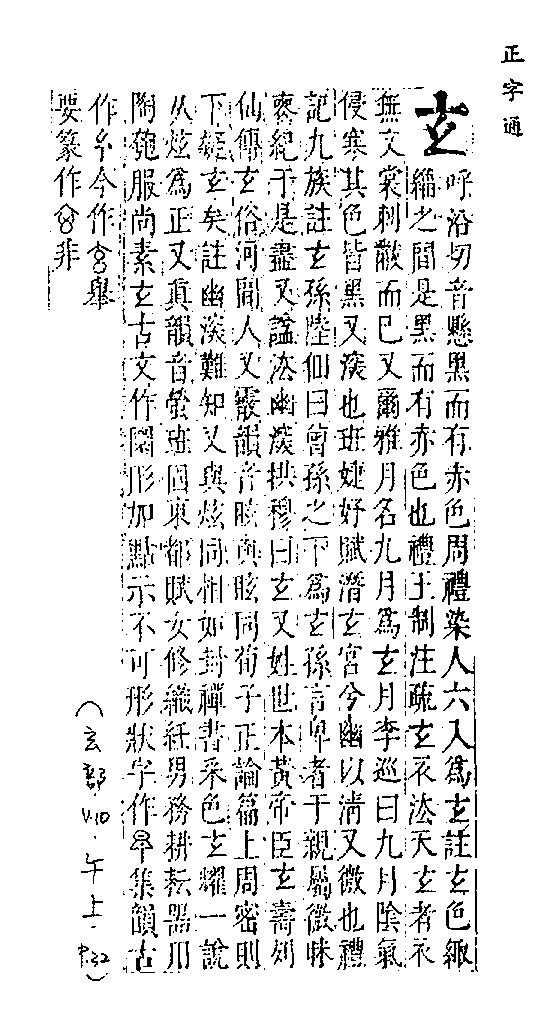 正字通
玄
呼沿切音懸黑而有赤色周禮染人六入爲玄註玄色緅
緇之間是黑而有赤色也禮王制注疏玄衣法天玄者衣
無文裳刺黻而巳又爾雅月名九月爲玄月李巡曰九月陰氣
侵寒其色皆黑又深也班婕妤賦潛玄宮兮幽以淸又微也禮
記九族註玄孫陸佃曰曾孫之下爲玄孫言卑者于親屬微昧
喪紀于是盡又諡法幽深拱穆曰玄又姓世本黃帝臣玄壽列
仙傳玄俗河間人又霰韻音眩與眩同荀子正論篇上周密則
下疑玄矣註幽深難知又與炫同相如封禪書采色玄耀一說
从炫爲正又眞韻音螢班固東都賦女修織紝男務耕耘器用
陶匏服尚素玄古文作 形加點示不可形狀字作 集韻古
作 今作 舉
要篆作 非
(玄部.V.10.午上.P.32)